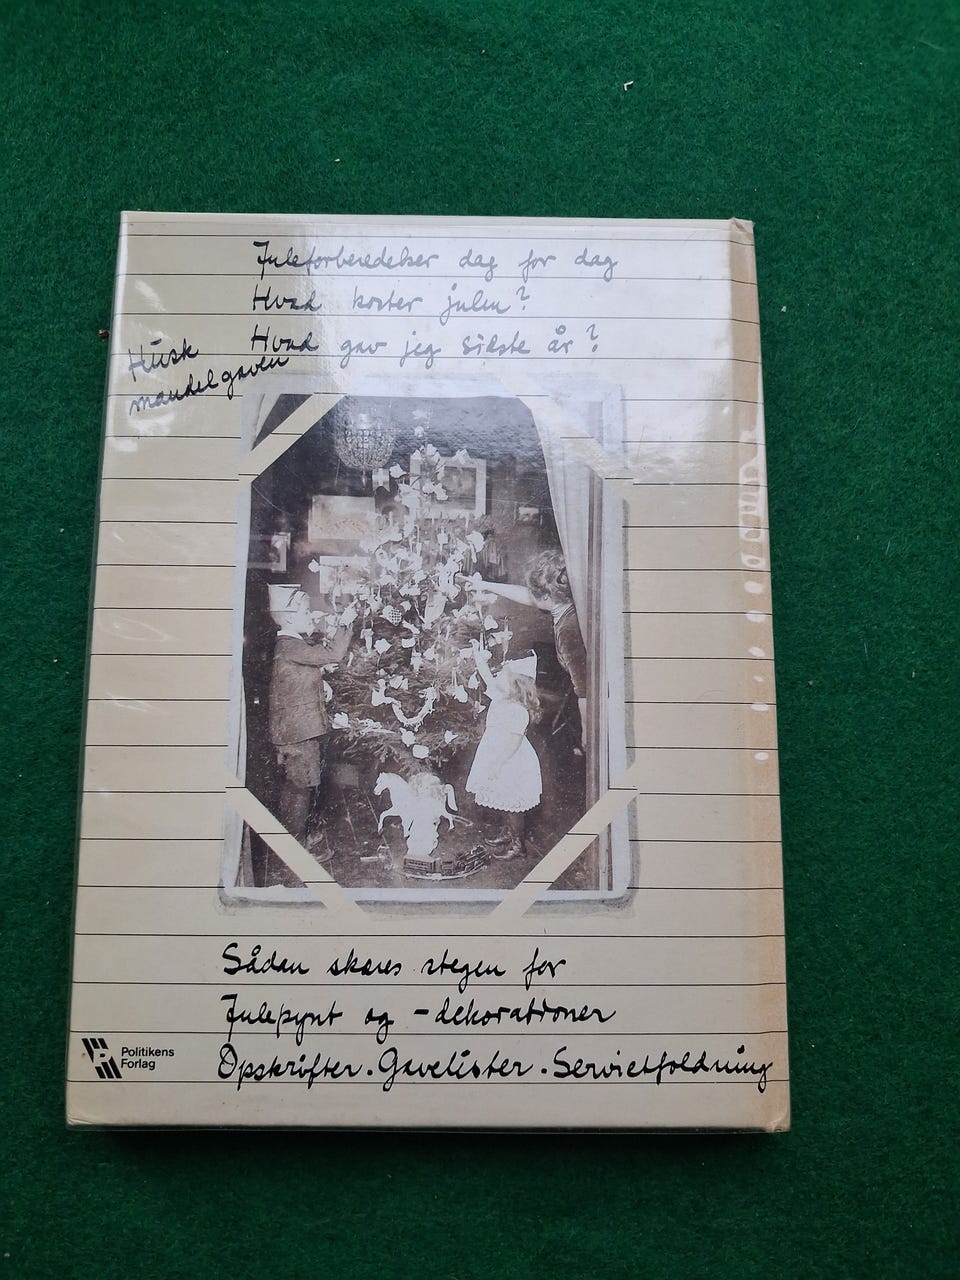 Juleforberedelser dag for dag
Hvad koster julen?
Hvad gav jeg sidste år?
Husk
mandelgaven
Sådan skæres stegen for
Julepynt og - dekorationer
Opskrifter. Gavelister. Servietfoldning
Politikens
Forlag